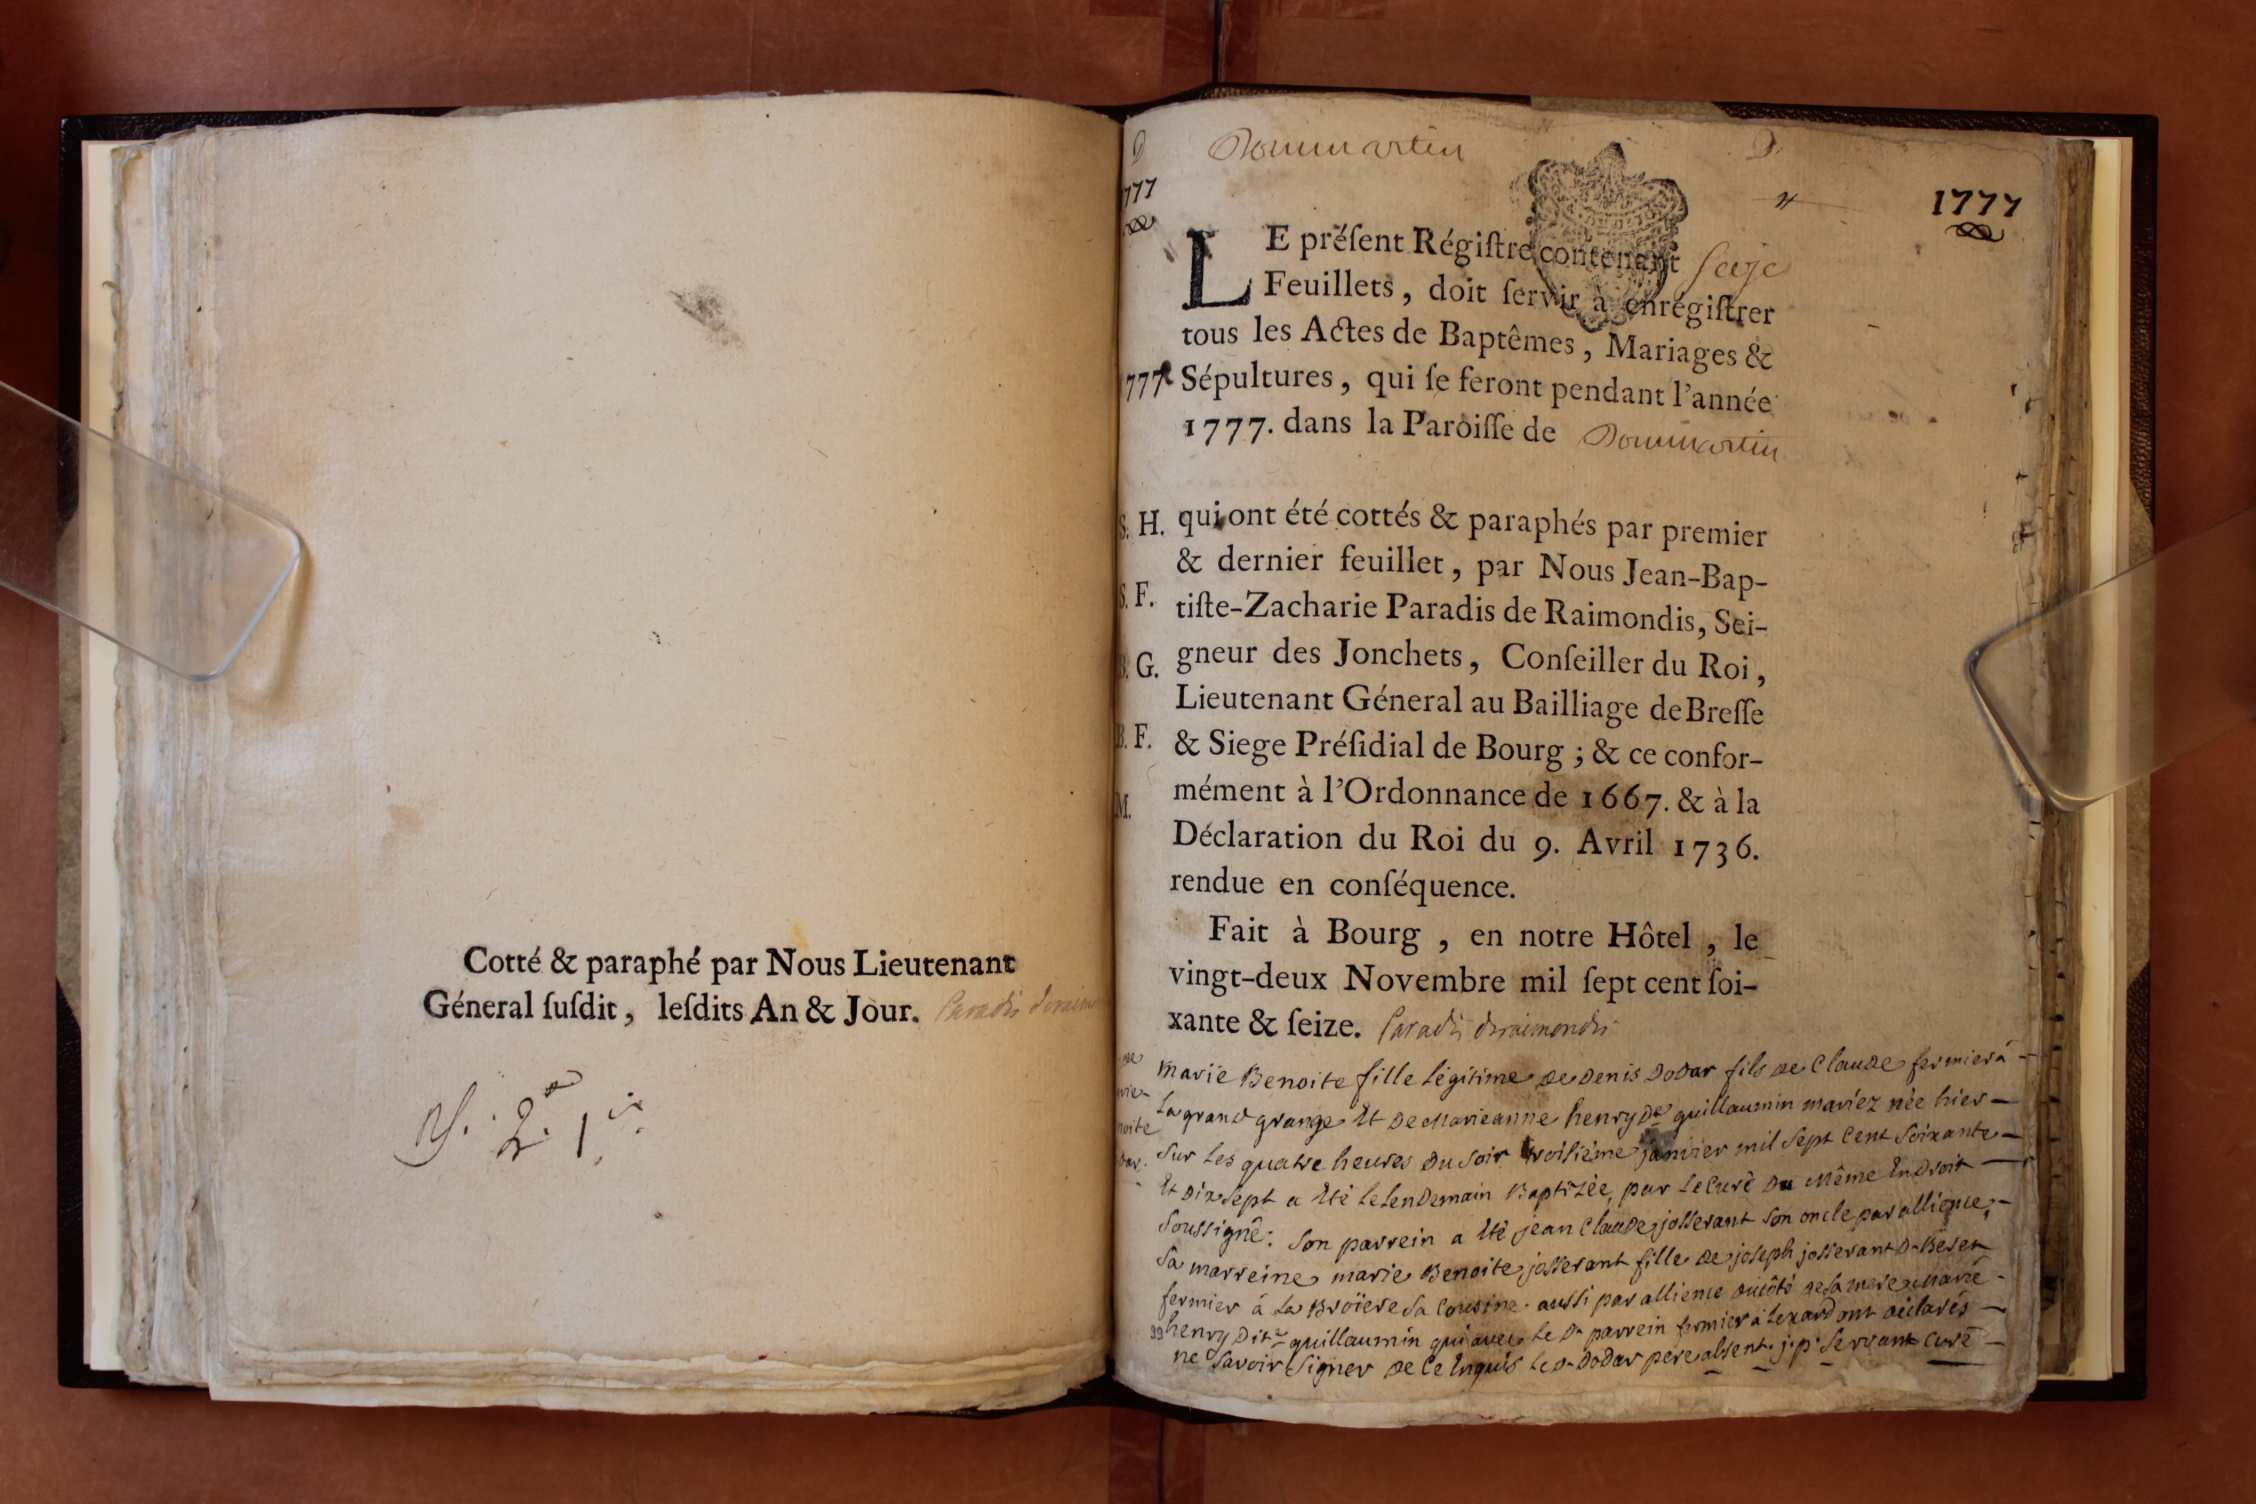 Cotté & paraphé par Nous Lieutenant
Géneral ſuſdit, leſdits An & Jour. Paradis
Dommartin
1777
1777
LE préſent Régiſtre contenant seize
Feuillets, doit ſervir à enrégiſtrer
tous les Actes de Baptêmes, Mariages &
1777 Sépultures, qui ſe feront pendant l'année
1777. dans la Paroiſſe de Dommartin
S. H. qui ont été cottés & paraphés par premier
& dernier feuillet, par Nous Jean-Bap-
S. F. tiſte-Zacharie Paradis de Raimondis, Sei-
B. G. gneur des Jonchets, Conſeiller du Roi,
Lieutenant Géneral au Bailliage de Breſſe
B. F. & Siege Préſidial de Bourg ; & ce confor-
M. mément à l'Ordonnance de 1667. & à la
Déclaration du Roi du 9. Avril 1736.
rendue en conſéquence.
Fait à Bourg, en notre Hôtel, le
vingt-deux Novembre mil ſept cent ſoi-
xante & ſeize. Paradis deraimondis
marie Benoite fille légitime de denis dodar fils de Claude fermier á
La grand grange Et de Marieanne henry dte guillaumin mariéz née hier
sur les quatre heures du soir troisiéme janvier mil sept cent soixante
Et dixsept a Eté le lendemain Baptizée par le curé du même Endroit
soussigné: son parrein a Eté jean Claude josserant son oncle par allience,
sa marreine marie Benoite josserant fille de joseph josserant dt Beset
fermier á la Broïere sa cousine aussi par allience du côté de sa mere Marie
henry dite guillaumin qui avec le dt parrein fermier á Lexard ont déclarés
ne savoir signer de ce Enquis le dt dodar pere absent. j. p. servant curé